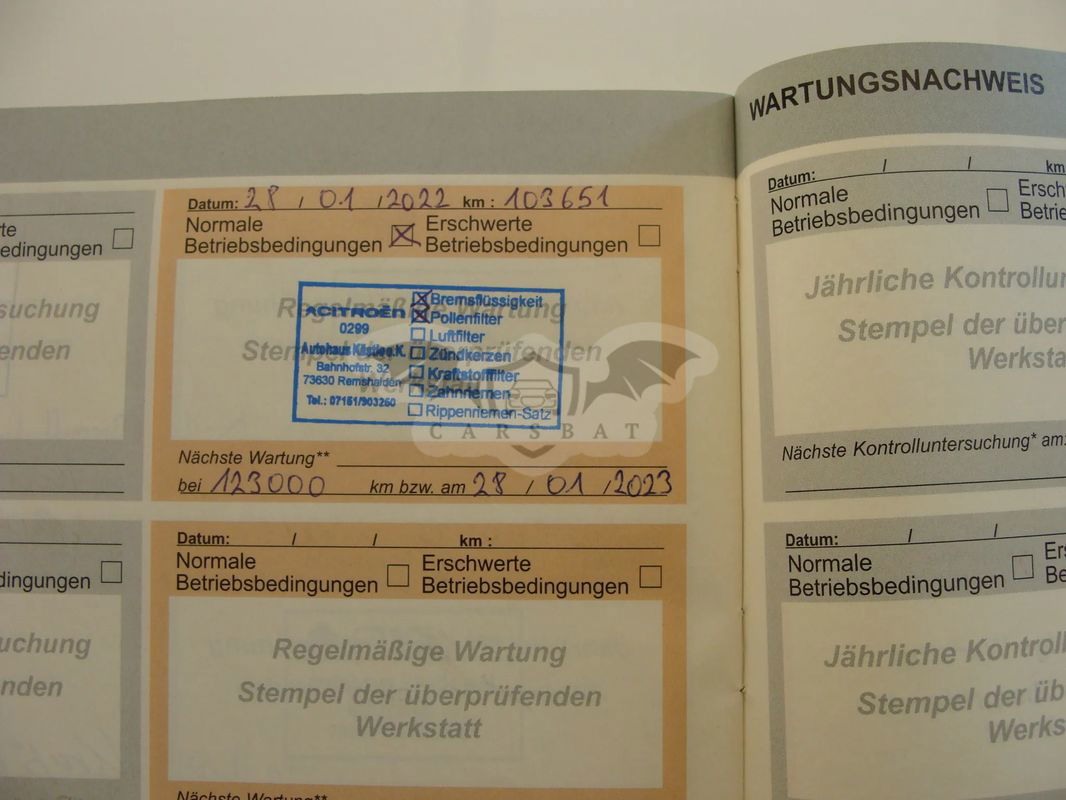 WARTUNGSNACHWEIS
rte
edingungen
suchung
fenden
Datum: 28 / 01 / 2022 km : 103651
Normale Betriebsbedingungen
Erschwerte Betriebsbedingungen
Regelmäßige Wartung
Stempel der überprüfenden
Werkstatt
CITROËN
0299
Bahnhofstr. 32
73630 Remshalden
Tel.: 07151/903260
Bremsflüssigkeit
Pollenfilter
Luftfilter
Zündkerzen
Kraftstofffilter
Zahnriemen
Rippenriemen-Satz
CARSBAT
Nächste Wartung**
bei 123000 km bzw. am 28 / 01 / 2023
dingungen
uchung
nden
Datum: / / km :
Normale Betriebsbedingungen
Erschwerte Betriebsbedingungen
Regelmäßige Wartung
Stempel der überprüfenden
Werkstatt
Nächste Wartung**
Datum: / / km
Normale Betriebsbedingungen
Ersch
Betrie
Jährliche Kontrollun
Stempel der über
Werksta
Nächste Kontrolluntersuchung* am:
Datum: / /
Normale Betriebsbedingungen
Ers
Be
Jährliche Kontroll
Stempel der üb
Werks